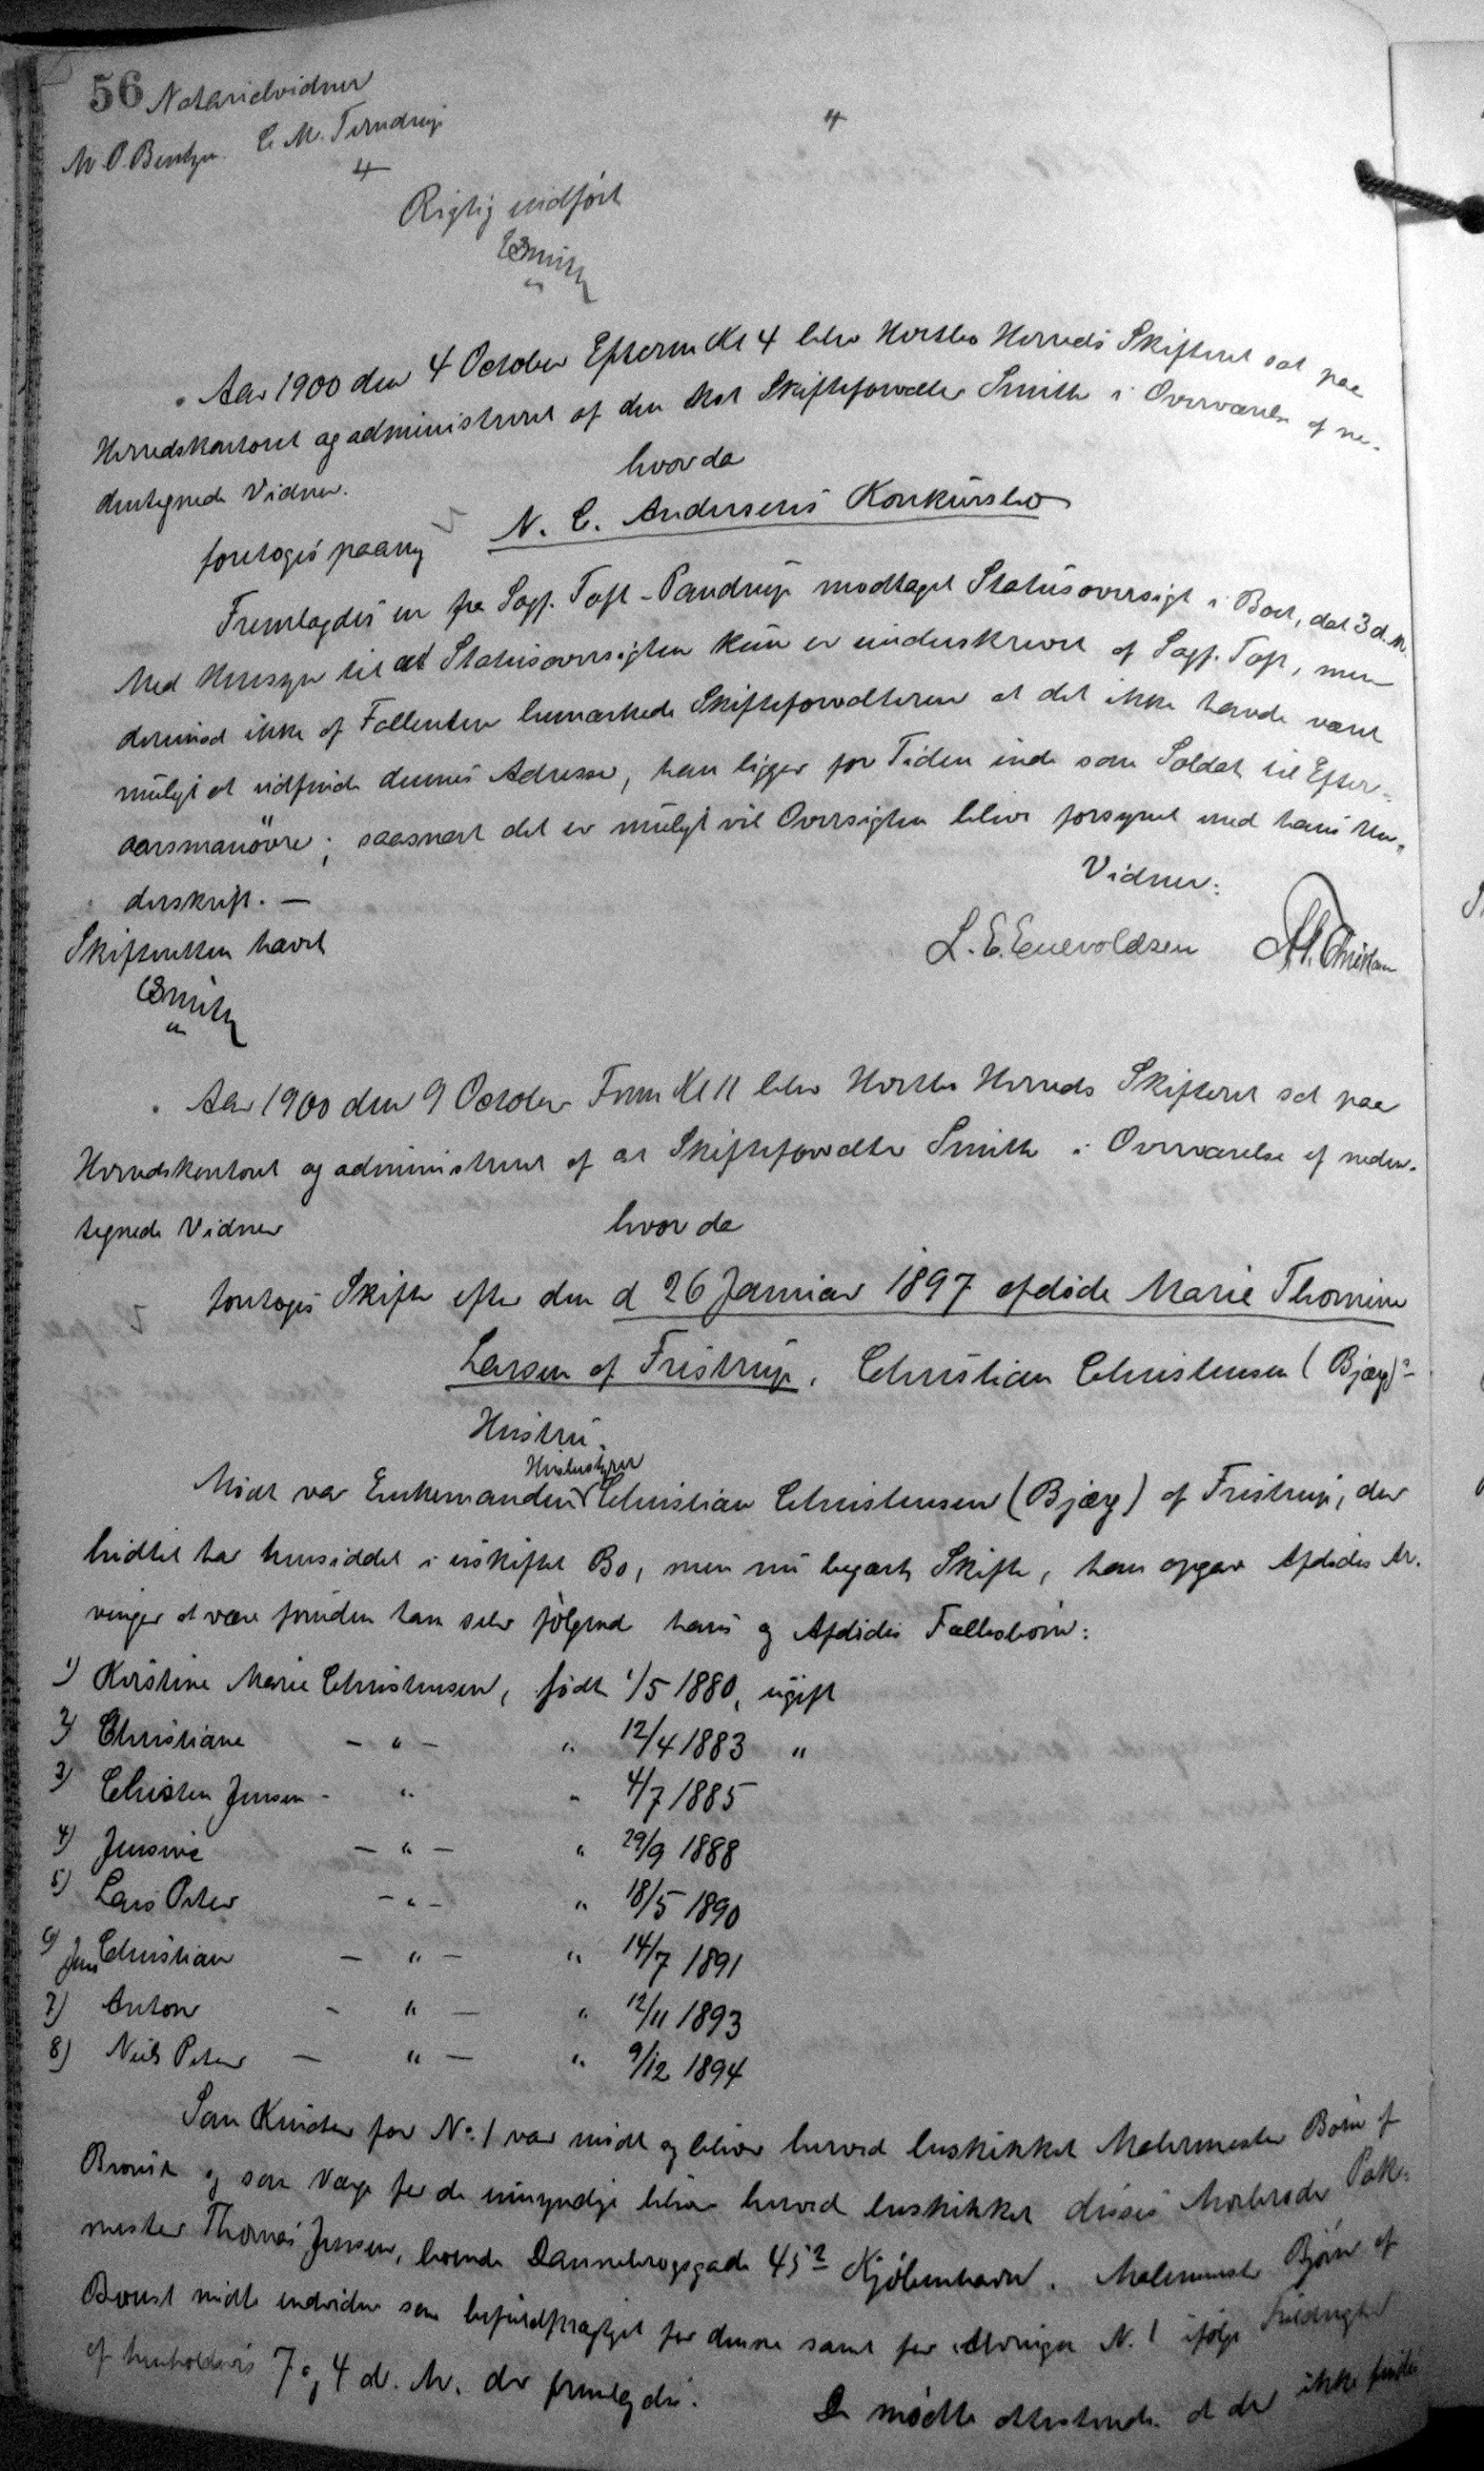 56 Notarialvidner
M. P. Bentzen. C. M. Terndrup
4
4
Rigtig indført
Smith
Aar 1900 den 4 October Efterm Kl 4 blev Hvetbo Herreds Skifteret sat paa
Herredskontoret og administreret af den Kst Skifteforvalter Smith i Overværelse af ne-
dentegnede Vidner.
hvorda
foretoges paany N. C. Andersens Konkursbo
Fremlagdes en fra Sagf. Toft-Pandrup modtaget Statusoversigt i Boet, dat 3 d. M.
Med Hensyn til at Statusoversigten kun er underskrevet af Sagf. Toft, men
derimod ikke af Fallenten bemærkede Skifteforvalteren at det ikke havde været
muligt at udfinde dennes Adresse, han ligger for Tiden inde som Soldat til Efter-
aarsmanøvre; saasnart det er muligt vil Oversigten blive forsynet med hans Un-
derskrift. —
Vidner:
Skifteretten hævet
L. E. Enevoldsen
Smith
Aar 1900 den 9 October Form Kl 11 blev Hvetbo Herreds Skifteret sat paa
Herredskontoret og administreret af Skifteforvalter Smith i Overværelse af neden-
tegnede Vidner
hvorda
foretoges Skifte efter den d 26 Januar 1897 afdøde Marie Thomine
Larsen af Fristrup, Christian Christensen (Bjærg)s
Hustru.
Husbestyrer
Mødt var Enkemanden Christian Christensen (Bjærg) af Fristrup, der
hidtil har hensiddet i uskiftet Bo, men nu begært Skifte, han opgav Afdødes Ar-
vinger at være foruden ham selv følgende hans og Afdødes Fællesbørn:
1) Kirstine Marie Christensen, født 1/5 1880, ugift
2) Christiane - " - " 12/4 1883 "
3) Christen Jensen - " " 4/7 1885
4) Jensine - " - " 29/9 1888
5) Lars Peter - " - " 18/5 1890
6) Jens Christian - " - " 14/7 1891
7) Anton - " - " 12/11 1893
8) Niels Peter - " - " 9/12 1894
Som Kurator for No. 1 var mødt og blev herved beskikket Malermester Bjørn af
Brovst og som Værge for de umyndige blev herved beskikket disses Morbroder Pak-
mester Thomas Jensen, boende Dannebrogsgade 45 2 Kjøbenhavn. Malermester Bjørn af
Brovst mødte endvidere som befuldmægtiget for denne samt for Arvingen N. 1 ifølge Fuldmagter
af henholdsvis 7 og 4 d. M. der fremlagdes.
De mødte attesterede at der ikke findes